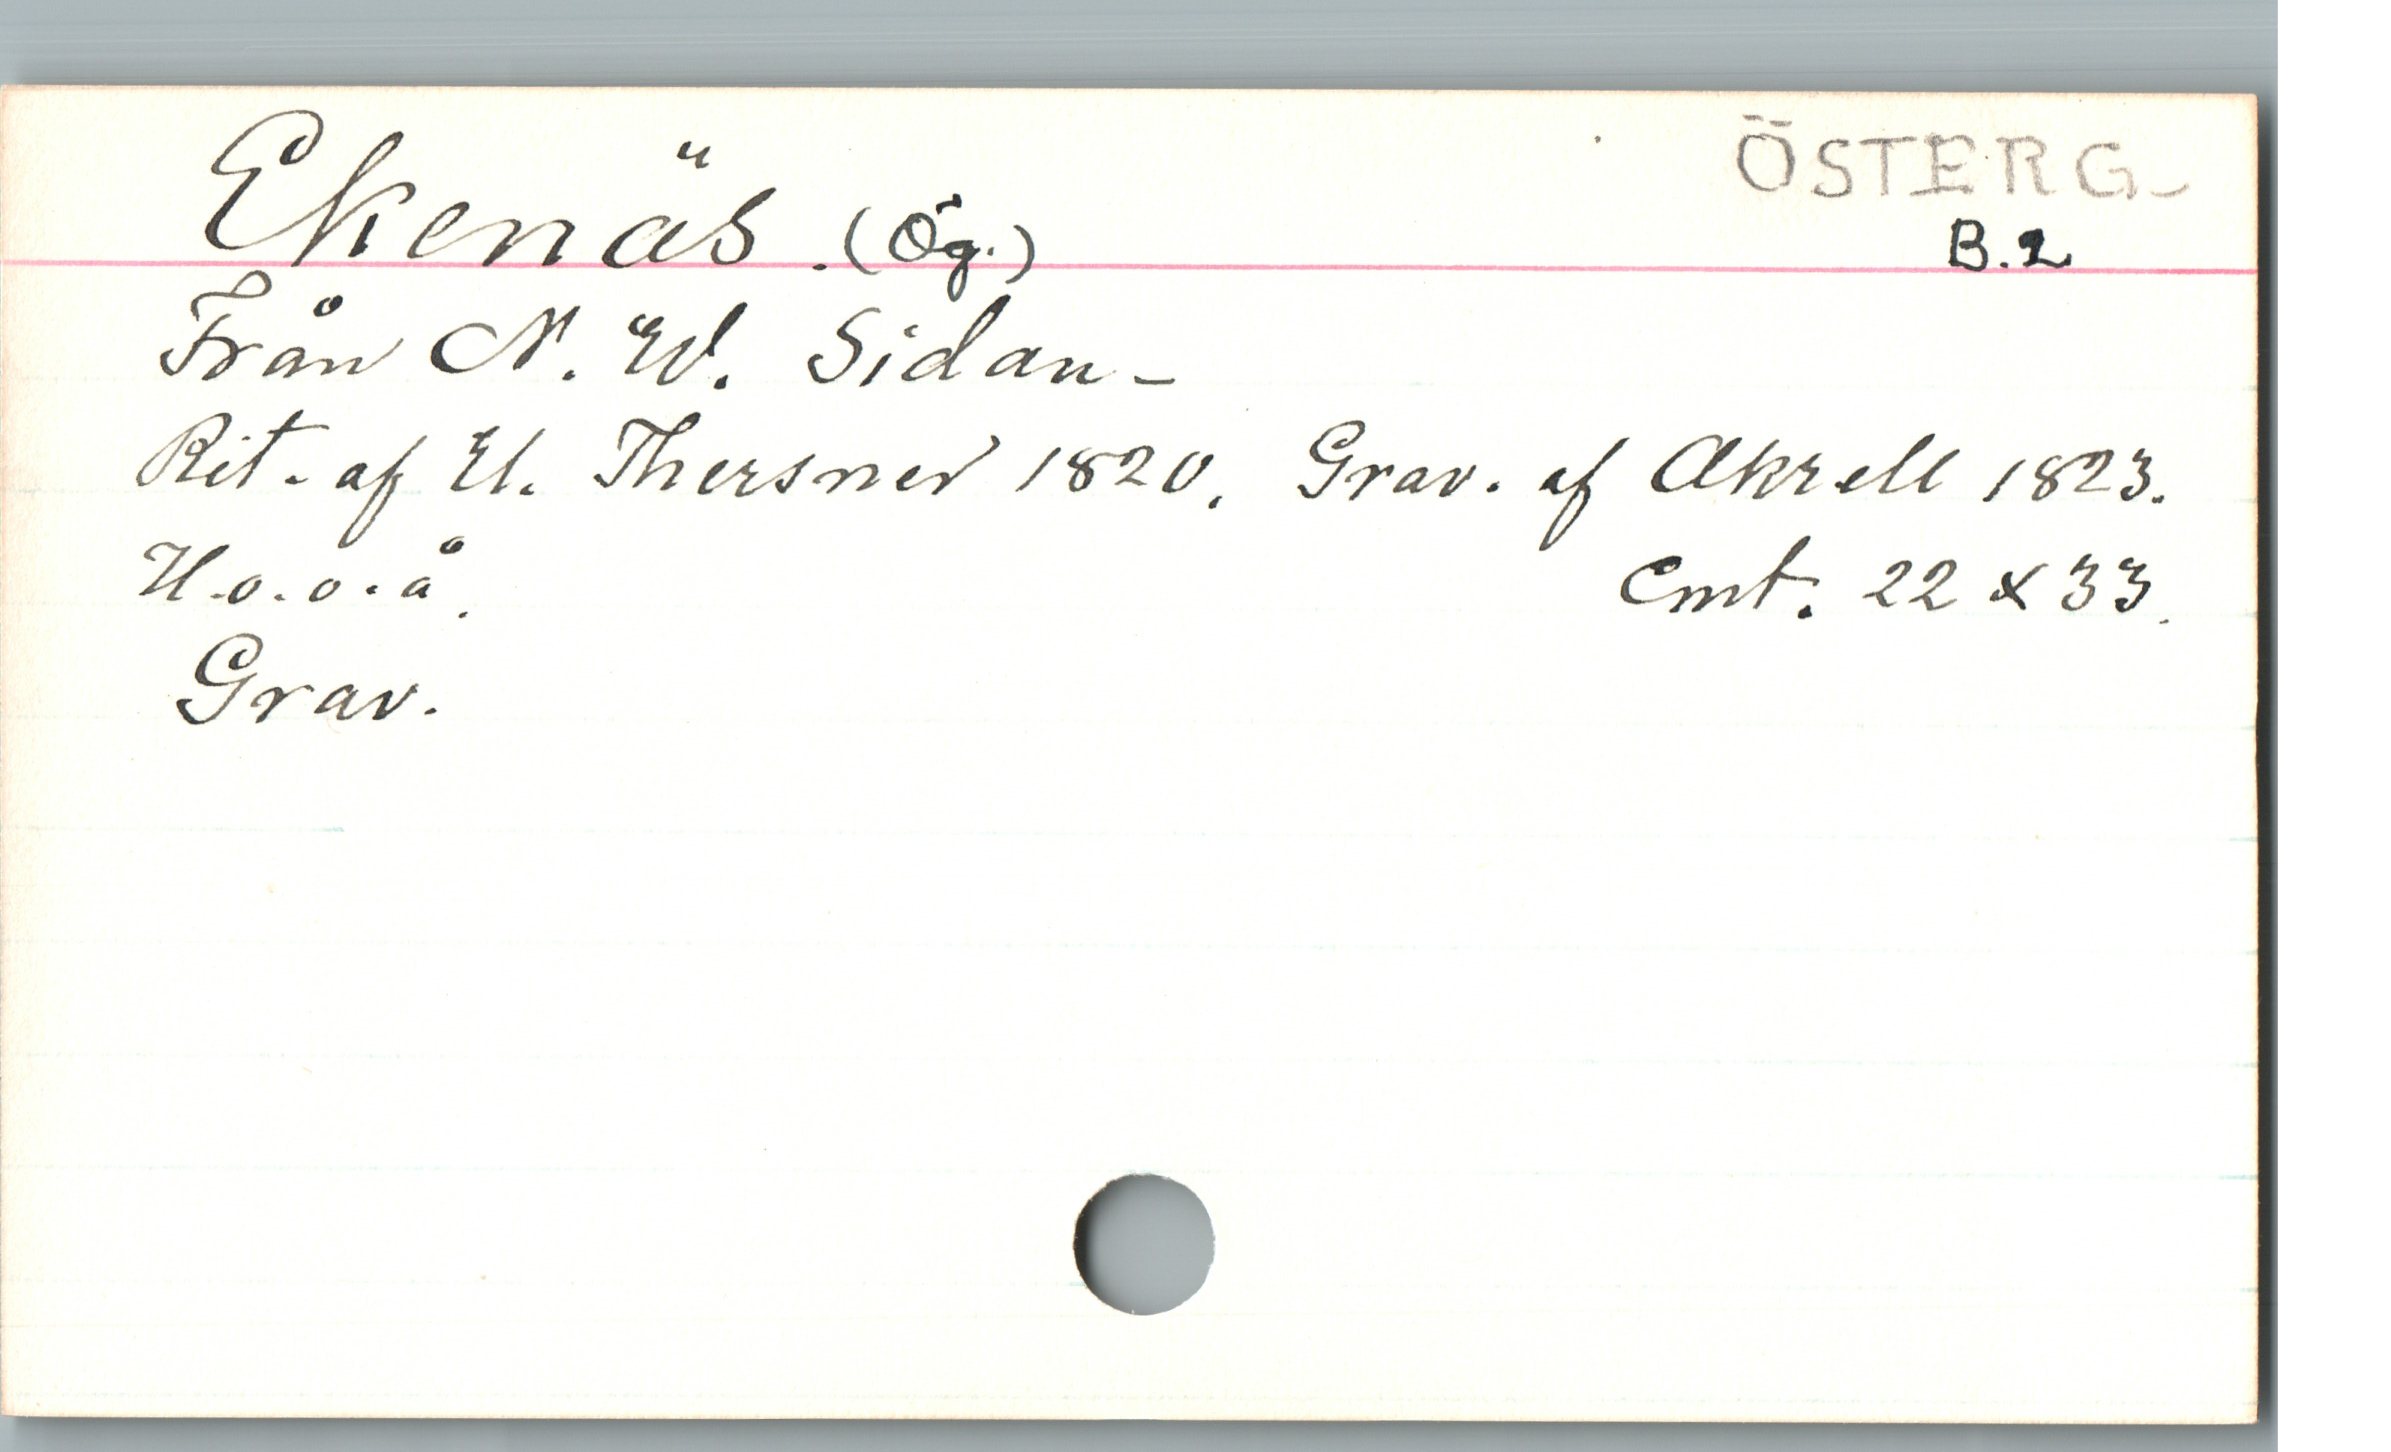 Ekenäs. (Ög.)
ÖSTERG-
B.2
Från N. W. Sidan-
Rit. af U. Thersner 1820. Grav. af Akrell 1823.
H.o.o.å.
Cmt. 22 x 33.
Grav.